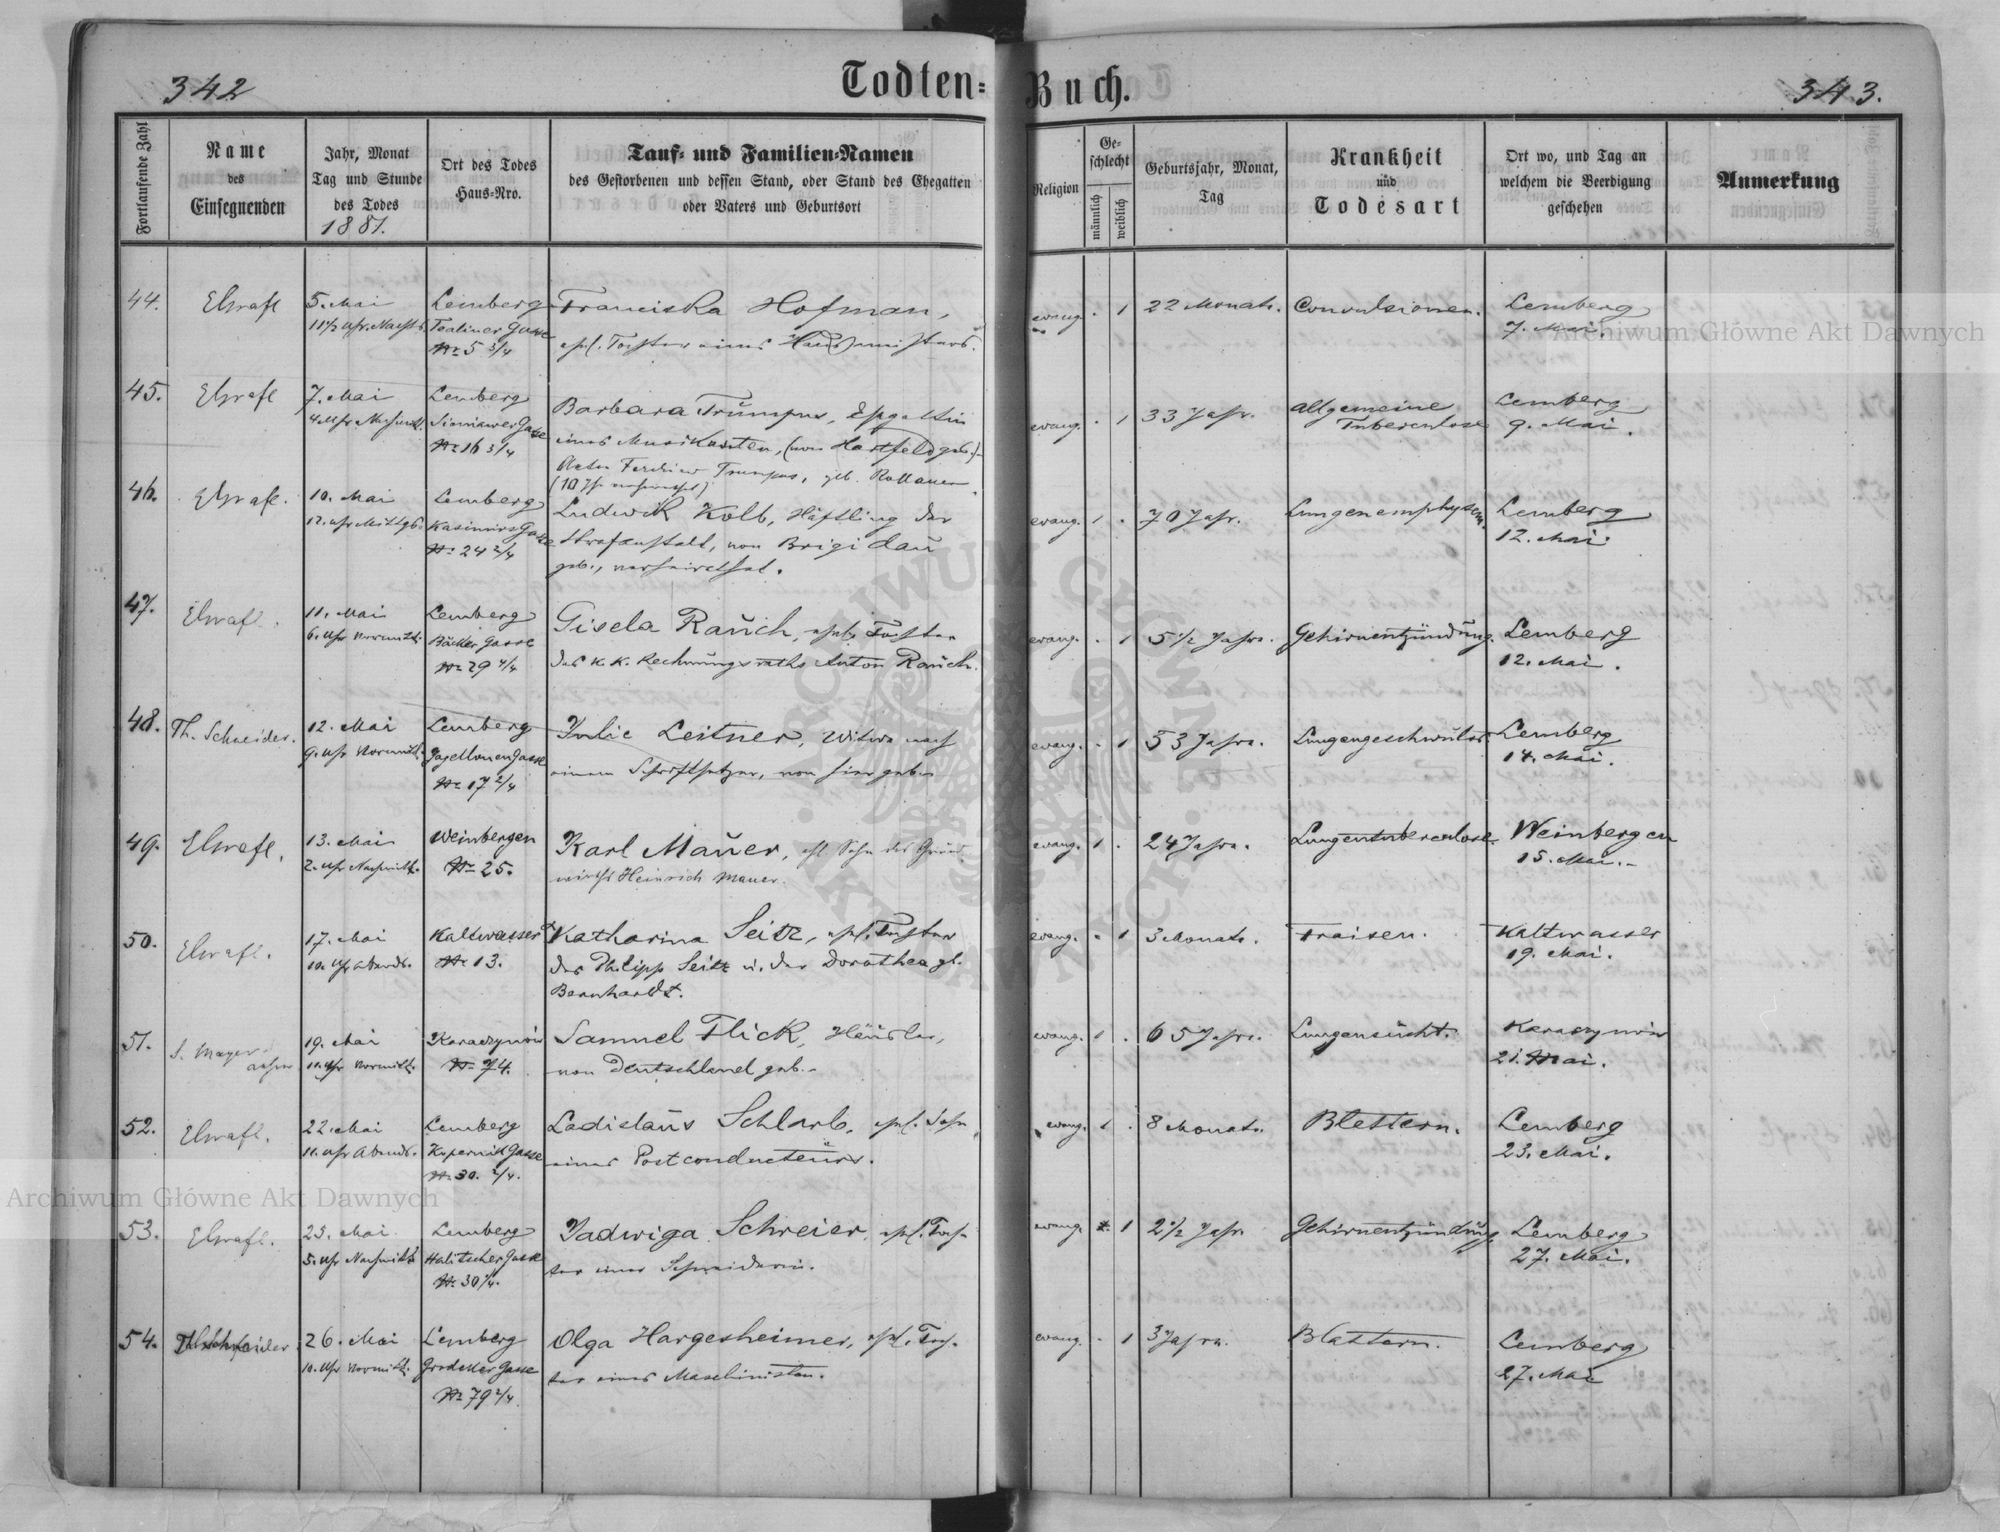 342
Todten=
Buch.
343.
Fortlaufende Zahl
Name
des
Einsegnenden
Jahr, Monat
Tag und Stunde
des Todes
1881.
Ort des Todes
Haus-Nro.
Tauf= und Familien=Namen
des Gestorbenen und dessen Stand, oder Stand des Ehegatten
oder Vaters und Geburtsort
Religion
Ge-
schlecht
männlich
weiblich
Geburtsjahr, Monat,
Tag
Krankheit
und
Todesart
Ort wo, und Tag an
welchem die Beerdigung
geschehen
Anmerkung
44. 5. Mai Lemberg Franciska Hofman, evang. . 1 22 Monate. Convulsionen. Lemberg
11½ Uhr Nachts. Gasse ehel. Tochter eines Hausmeisters. 7. Mai.
No 5 3/4
45. 7. Mai Lemberg Barbara Trümpus, Ehgattin evang. . 1 33 Jahr. allgemeine Tuberculose Lemberg
4 Uhr Nachmitt. Gasse eines Musikanten, (von Hartfeld geb.) 9. Mai.
No 16 3/4 Trumpus, geb.
46. 10. Mai Lemberg Ludwik Kolb, Häftling der evang. 1 . 70 Jahr. Lungenemphysem. Lemberg
12. Uhr Mittgs. Kasimirs Gasse Strafanstalt, von Brigidau 12. Mai.
No 24 2/4 geb., verheirathet.
47. 11. Mai Lemberg Gisela Rauch, ehel. Tochter evang. . 1 5½ Jahre. Gehirnentzündung. Lemberg
6. Uhr Vormitt. Bäcker Gasse des k. k. Rechnungsraths Anton Rauch. 12. Mai.
No 29 4/4
48. Th. Schneider. 12. Mai Lemberg Julie Leitner, Witwe nach evang. . 1 53 Jahre. Lungengeschwulst. Lemberg
9. Uhr Vormitt. Jagellonen Gasse einem Schriftsetzer, von hier geb. 14. Mai.
No 17 2/4
49. 13. Mai Weinbergen Karl Mauer, ehl. Sohn des Grund- evang. 1 . 24 Jahre. Lungentuberculose. Weinbergen
2. Uhr Nachmitt. No 25. wirths Heinrich Mauer. 15. Mai.
50. 17. Mai Kaltwasser Katharina Seitz, ehel. Tochter evang. . 1 3 Monate. Fraisen. Kaltwasser
10. Uhr Abends. No 13. des Philipp Seitz u. der Dorothea gb. 19. Mai.
Bernhardt.
51. S. Mayer 19. Mai Karaczynów Samuel Flick, Häusler, evang. 1 . 65 Jahre. Lungensucht. Karaczynów
11. Uhr Vormitt. No 74. von Deutschland geb. 21. Mai.
52. 22. Mai Lemberg Ladislaus Schlarb, ehel. Sohn evang. 1 . 8 Monate. Blattern. Lemberg
11. Uhr Abends. Kopernik Gasse eines Postconducteurs. 23. Mai.
No 30. 2/4.
53. Mai Lemberg Jadwiga Schreier, ehel. Toch- evang. . 1 2½ Jahr Gehirnentzündung Lemberg
5. Uhr Nachmitt. Halitscher Gasse ter einer Schneiderin. 27. Mai.
No 30 1/4.
54. Th. Schneider 26. Mai Lemberg Olga Hargesheimer, ehel. Toch- evang. . 1 3 Jahre. Blattern. Lemberg
10. Uhr Vormitt. Grodeker Gasse ter eines Maschinisten. 27. Mai
No 79 2/4.
Archiwum Główne Akt Dawnych
Archiwum Główne Akt Dawnych
ARCHIWUM GŁÓWNE AKT DAWNYCH